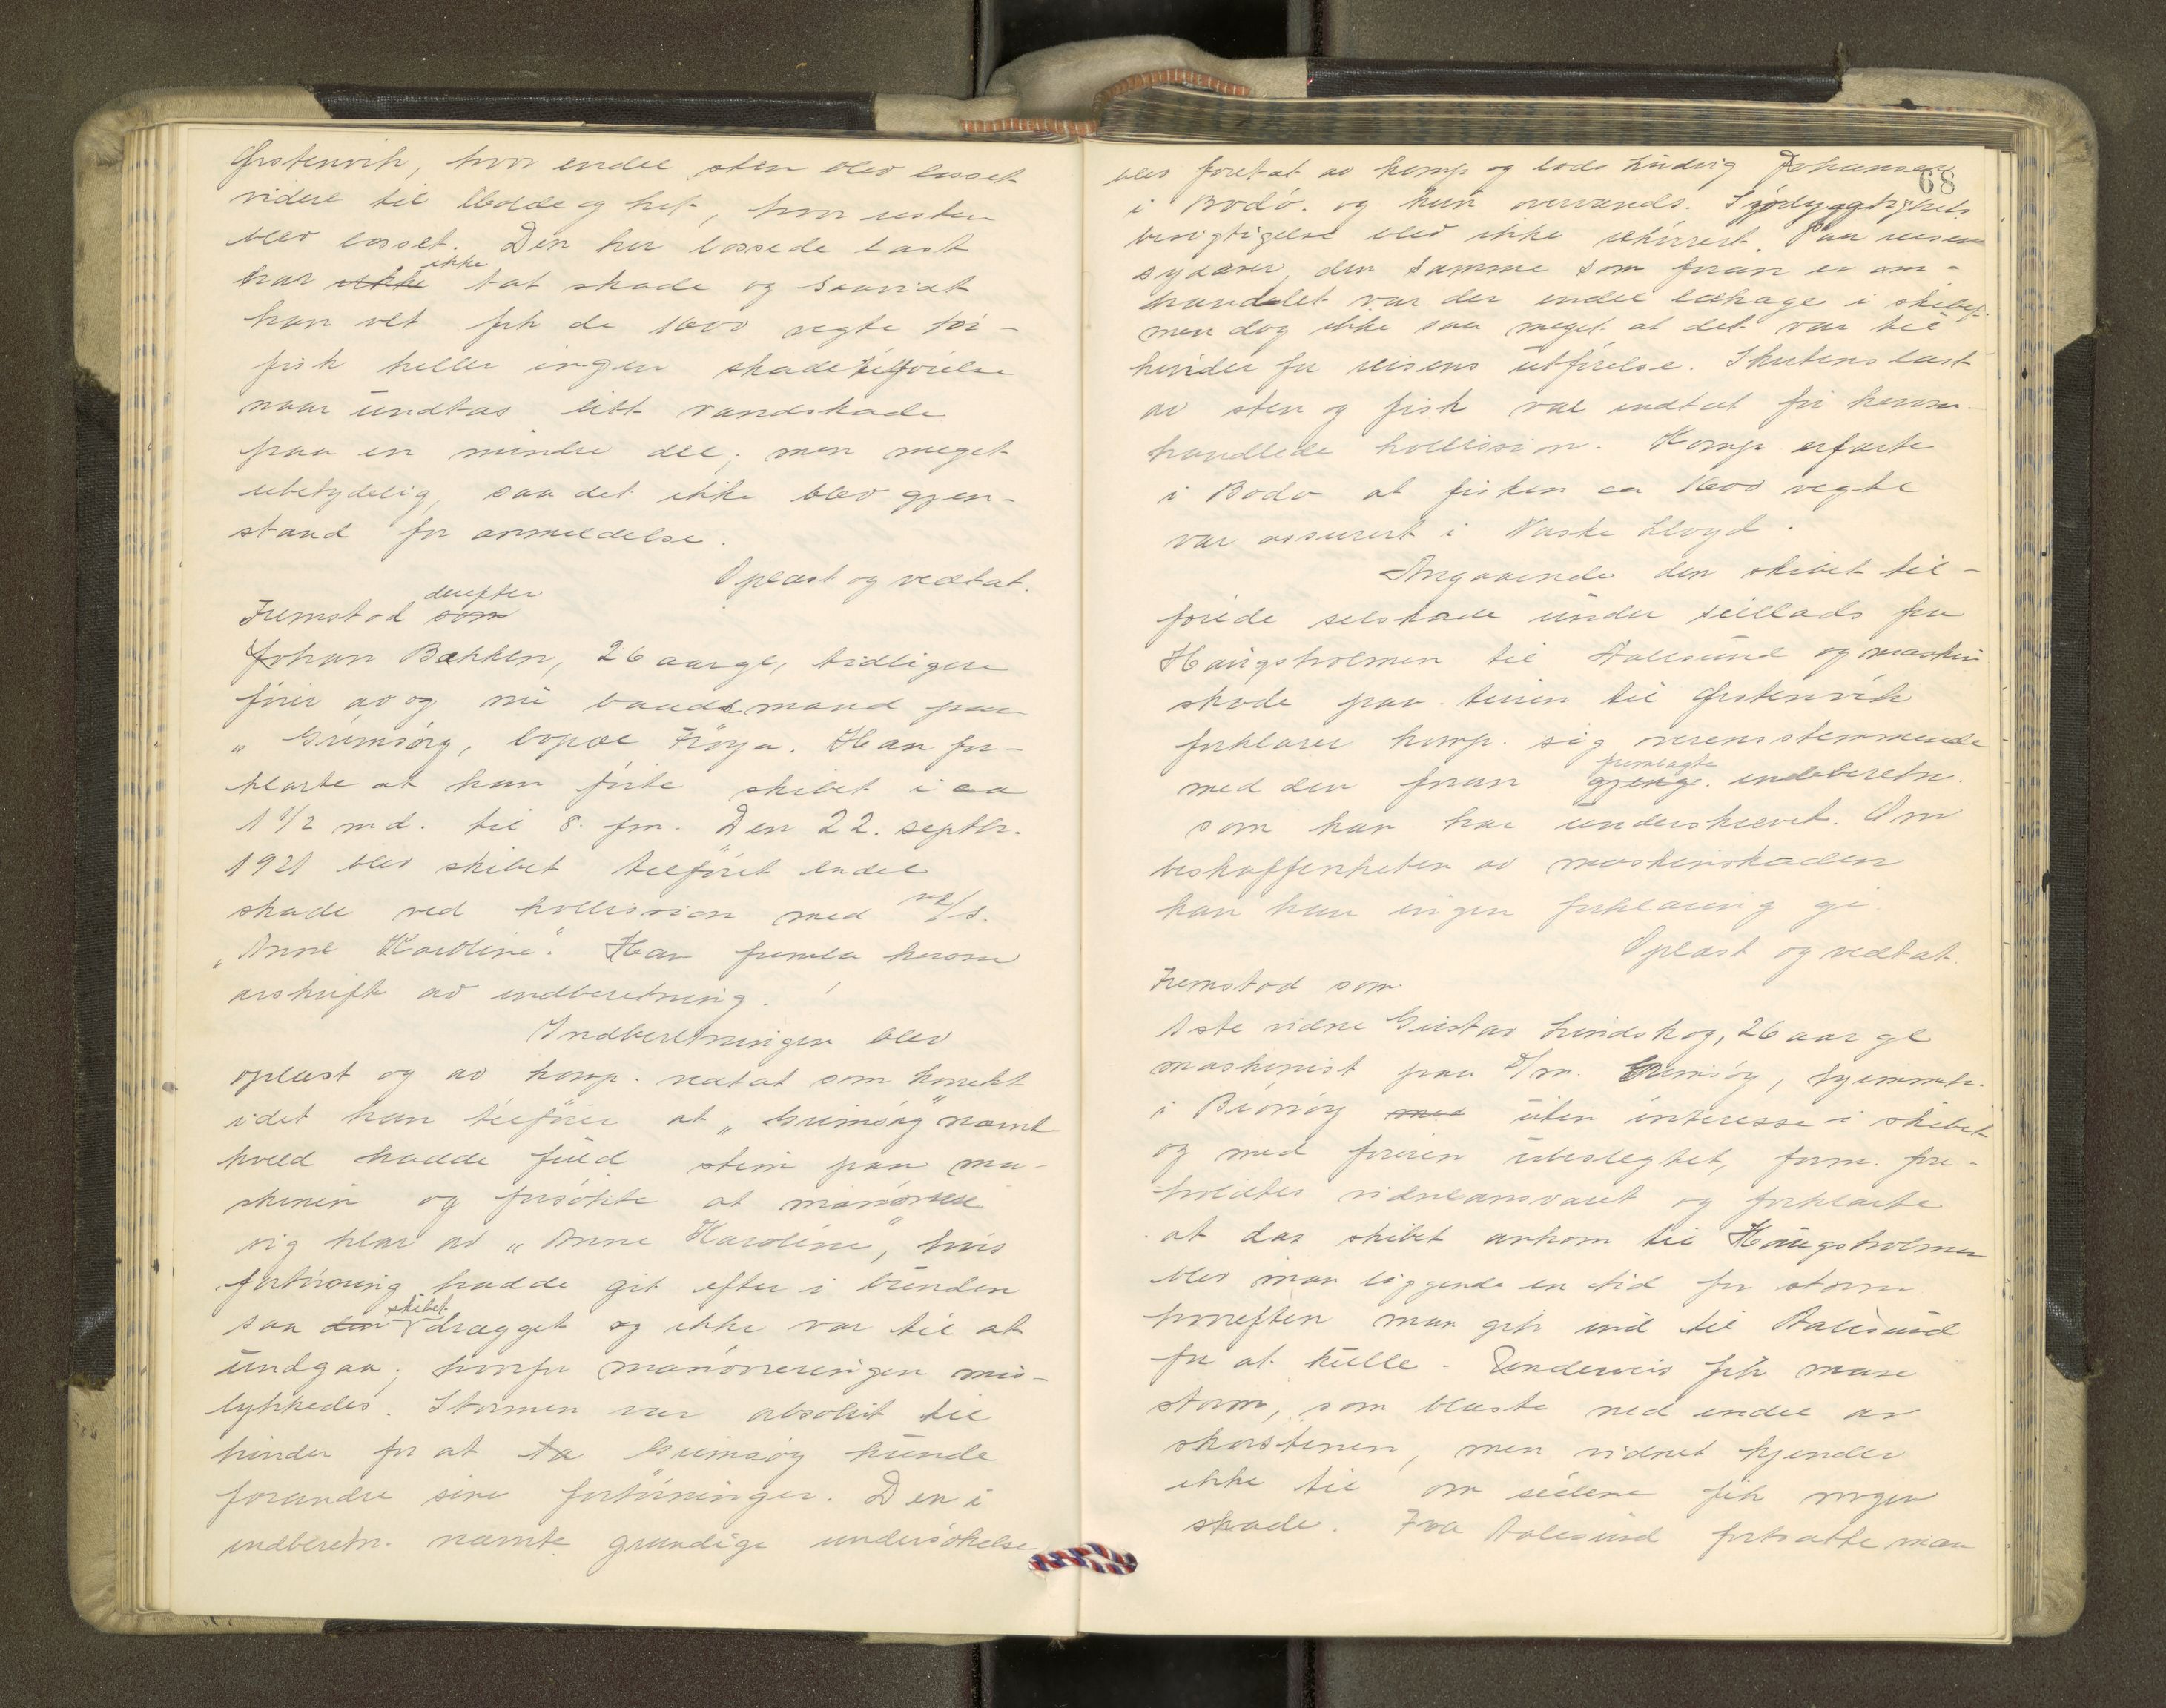 Ørstenvik, hvor endel sten blev losset
videre til Molde og hit, hvor resten
blev losset. Den her lossede last
har ikke ikke tat skade og saavidt
han vet fik de 1600 vegte tör-
fisk heller ingen skade tilföielse
naar undtas litt vandskade
paa en mindre del; men meget
ubetydelig, saa det ikke blev gjen-
stand for anmeldelse.
Oplæst og vedtat.
Fremstod som derefter
Johan Bakken, 26 aar gl, tidligere
förer av og nu baadsmand paa
"Grimsöy, bopæl Fröya. Han for-
klarte at han förte skibet i ca
1 1/2 md. til 8. fm. Den 22. septbr.
1921 blev skibet tilföiet endel
skade ved kollision med m/s.
"Anne Karoline". Han fremla herom
avskrift av indberetning.
Indberetningen blev
oplæst og av komp. vedtat som korrekt
idet han tilföier at "Grimsöy" nævnt
kveld hadde fuld stim paa ma-
skinen og forsökte at manövrere
sig klar av "Anne Karoline", hvis
fortöining hadde git efter i bunden
saa den skibet drægget og ikke var til at
undgaa; hvorfor manövreringen mis-
lykkedes. Stormen var absolut til
hinder for at ta Grimsöy kunde
forandre sine fortöininger. Den i
indberetn. nævnte grundige undersökelse
68
blev foretat av komp og lods Ludvig Johansen
i Bodö. og kun overvands. Sjödygtigheds
besigtigelse blev ikke rekvirert. Paa reisen
sydover, den samme som foran er om-
handlet var der endel lekage i skibet
men dog ikke saa meget at det var til
hinder for reisens utförelse. Skutens last
av sten og fisk var indtat för herom-
handlede kollission. Komp erfarte
i Bodö at fisken ca 1600 vegte
var assurert i Norske Lloyd.
Angaaende den skibet til-
föiede selskade under seillads fra
Haugsholmen til Aalesund og maskin
skade paa turen til Ørstenvik
forklarer komp. sig overensstemmende
med den foran gjeng. fremlagte indeberetn.
som han har underskrevet. Om
beskaffenheten av maskinskaden
kan han ingen forklaring gi.
Oplæst og vedtat.
Fremstod som
1ste vidne Gustav Lindskog, 26 aar gl
maskinist paa D/m. Grimsöy, hjemmeh.
i Brönöy med uten interesse i skibet
og med föreren ubeslegtet, form. fore-
holdtes vidneansvaret og forklarte
at da skibet ankom til Haugsholmen
blev man liggende en tid for storm
hvorefter man gik ind til Aalesund
for at kulle. Underveis fik man
storm, som blaaste ned endel av
skorstenen, men vidnet kjender
ikke til om seilene fik nogen
skade. Fra Aalesund fortsatte man